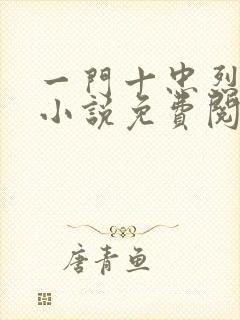 一門十忠烈
小說免費閱
唐青魚